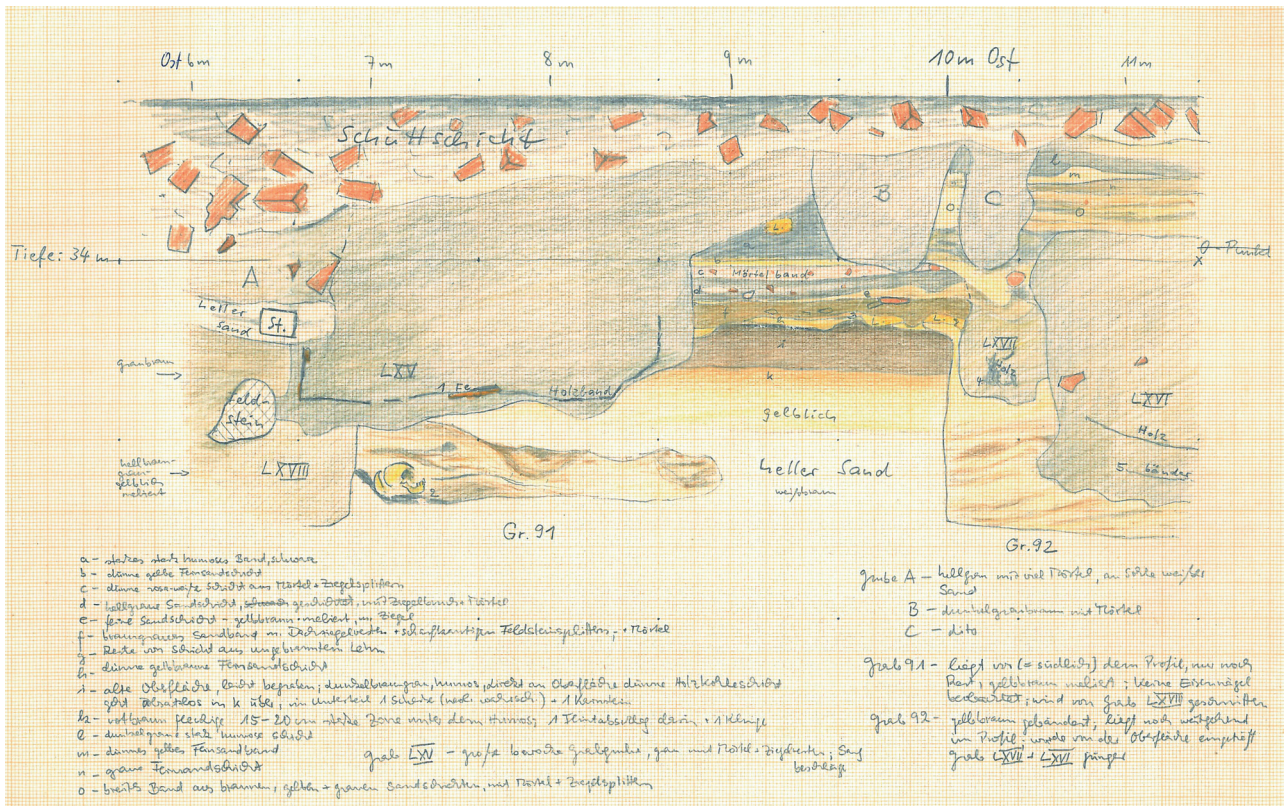 Ost 6m 7m 8m 9m 10m Ost 11m
Schuttschicht
B
C
l
m
n
o
o
Tiefe: 34 m
0-Punkt
A
L.
a
b
c Mörtelband
d
e
f
g
h
i
k
L.
L.
heller
Sand
St.
graubraun
LXV
1 Fe
Holzband
LXVII
Holz
4
LXVI
Holz
5 bänder
Feld-
stein
gelblich
hellbraun-
grau-
gelblich
meliert
LXVIII
2
heller Sand
weißbraun
Gr. 91
Gr. 92
a - starkes stark humoses Band, schwarz
b - dünne gelbe Feinsandschicht
c - dünne rosa-weiße Schicht aus Mörtel + Ziegelsplittern
d - hellgraue Sandschicht, geschichtet, mit Ziegelbruch + Mörtel
e - feine Sandschicht - gelbbraun meliert, m. Ziegel
f - braungraues Sandband m. Dachziegelresten + scharfkantigen Feldsteinsplittern, + Mörtel
g - Reste von Schicht aus ungebranntem Lehm
h - dünne gelbbraune Feinsandschicht
i - alte Oberfläche, dunkelbraungrau, humos, direkt an Oberfläche dünne Holzkohleschicht
geht absatzlos in k über, im Unterteil 1 Scherbe + 1 Kernstein
k - rotbraun fleckige 15-20 cm starke Zone unter dem Humus, 1 Feintabschlag darin + 1 Klinge
l - dunkelgraue stark humose Schicht
m - dünnes gelbes Feinsandband
n - graue Feinsandschicht
o - breites Band aus braunen, gelben + grauen Sandschichten, mit Mörtel + Ziegelsplittern
Grab LXV - große barocke Grabgrube, grau mit Mörtel + Ziegelresten; Sarg
beschläge
Grube A - hellgrau mit viel Mörtel, an Sohle weißer
Sand
B - dunkelgraubraun mit Mörtel
C - dito
Grab 91 - liegt vor (= südlich) dem Profil, nur noch
Rest; gelbbraun meliert; keine Eisennägel
beobachtet; wird von Grab LXVIII geschnitten
Grab 92 - gelbbraun gebändert; liegt noch weitgehend
im Profil; wurde von der Oberfläche eingetieft
Grab LXVII + LXVI jünger